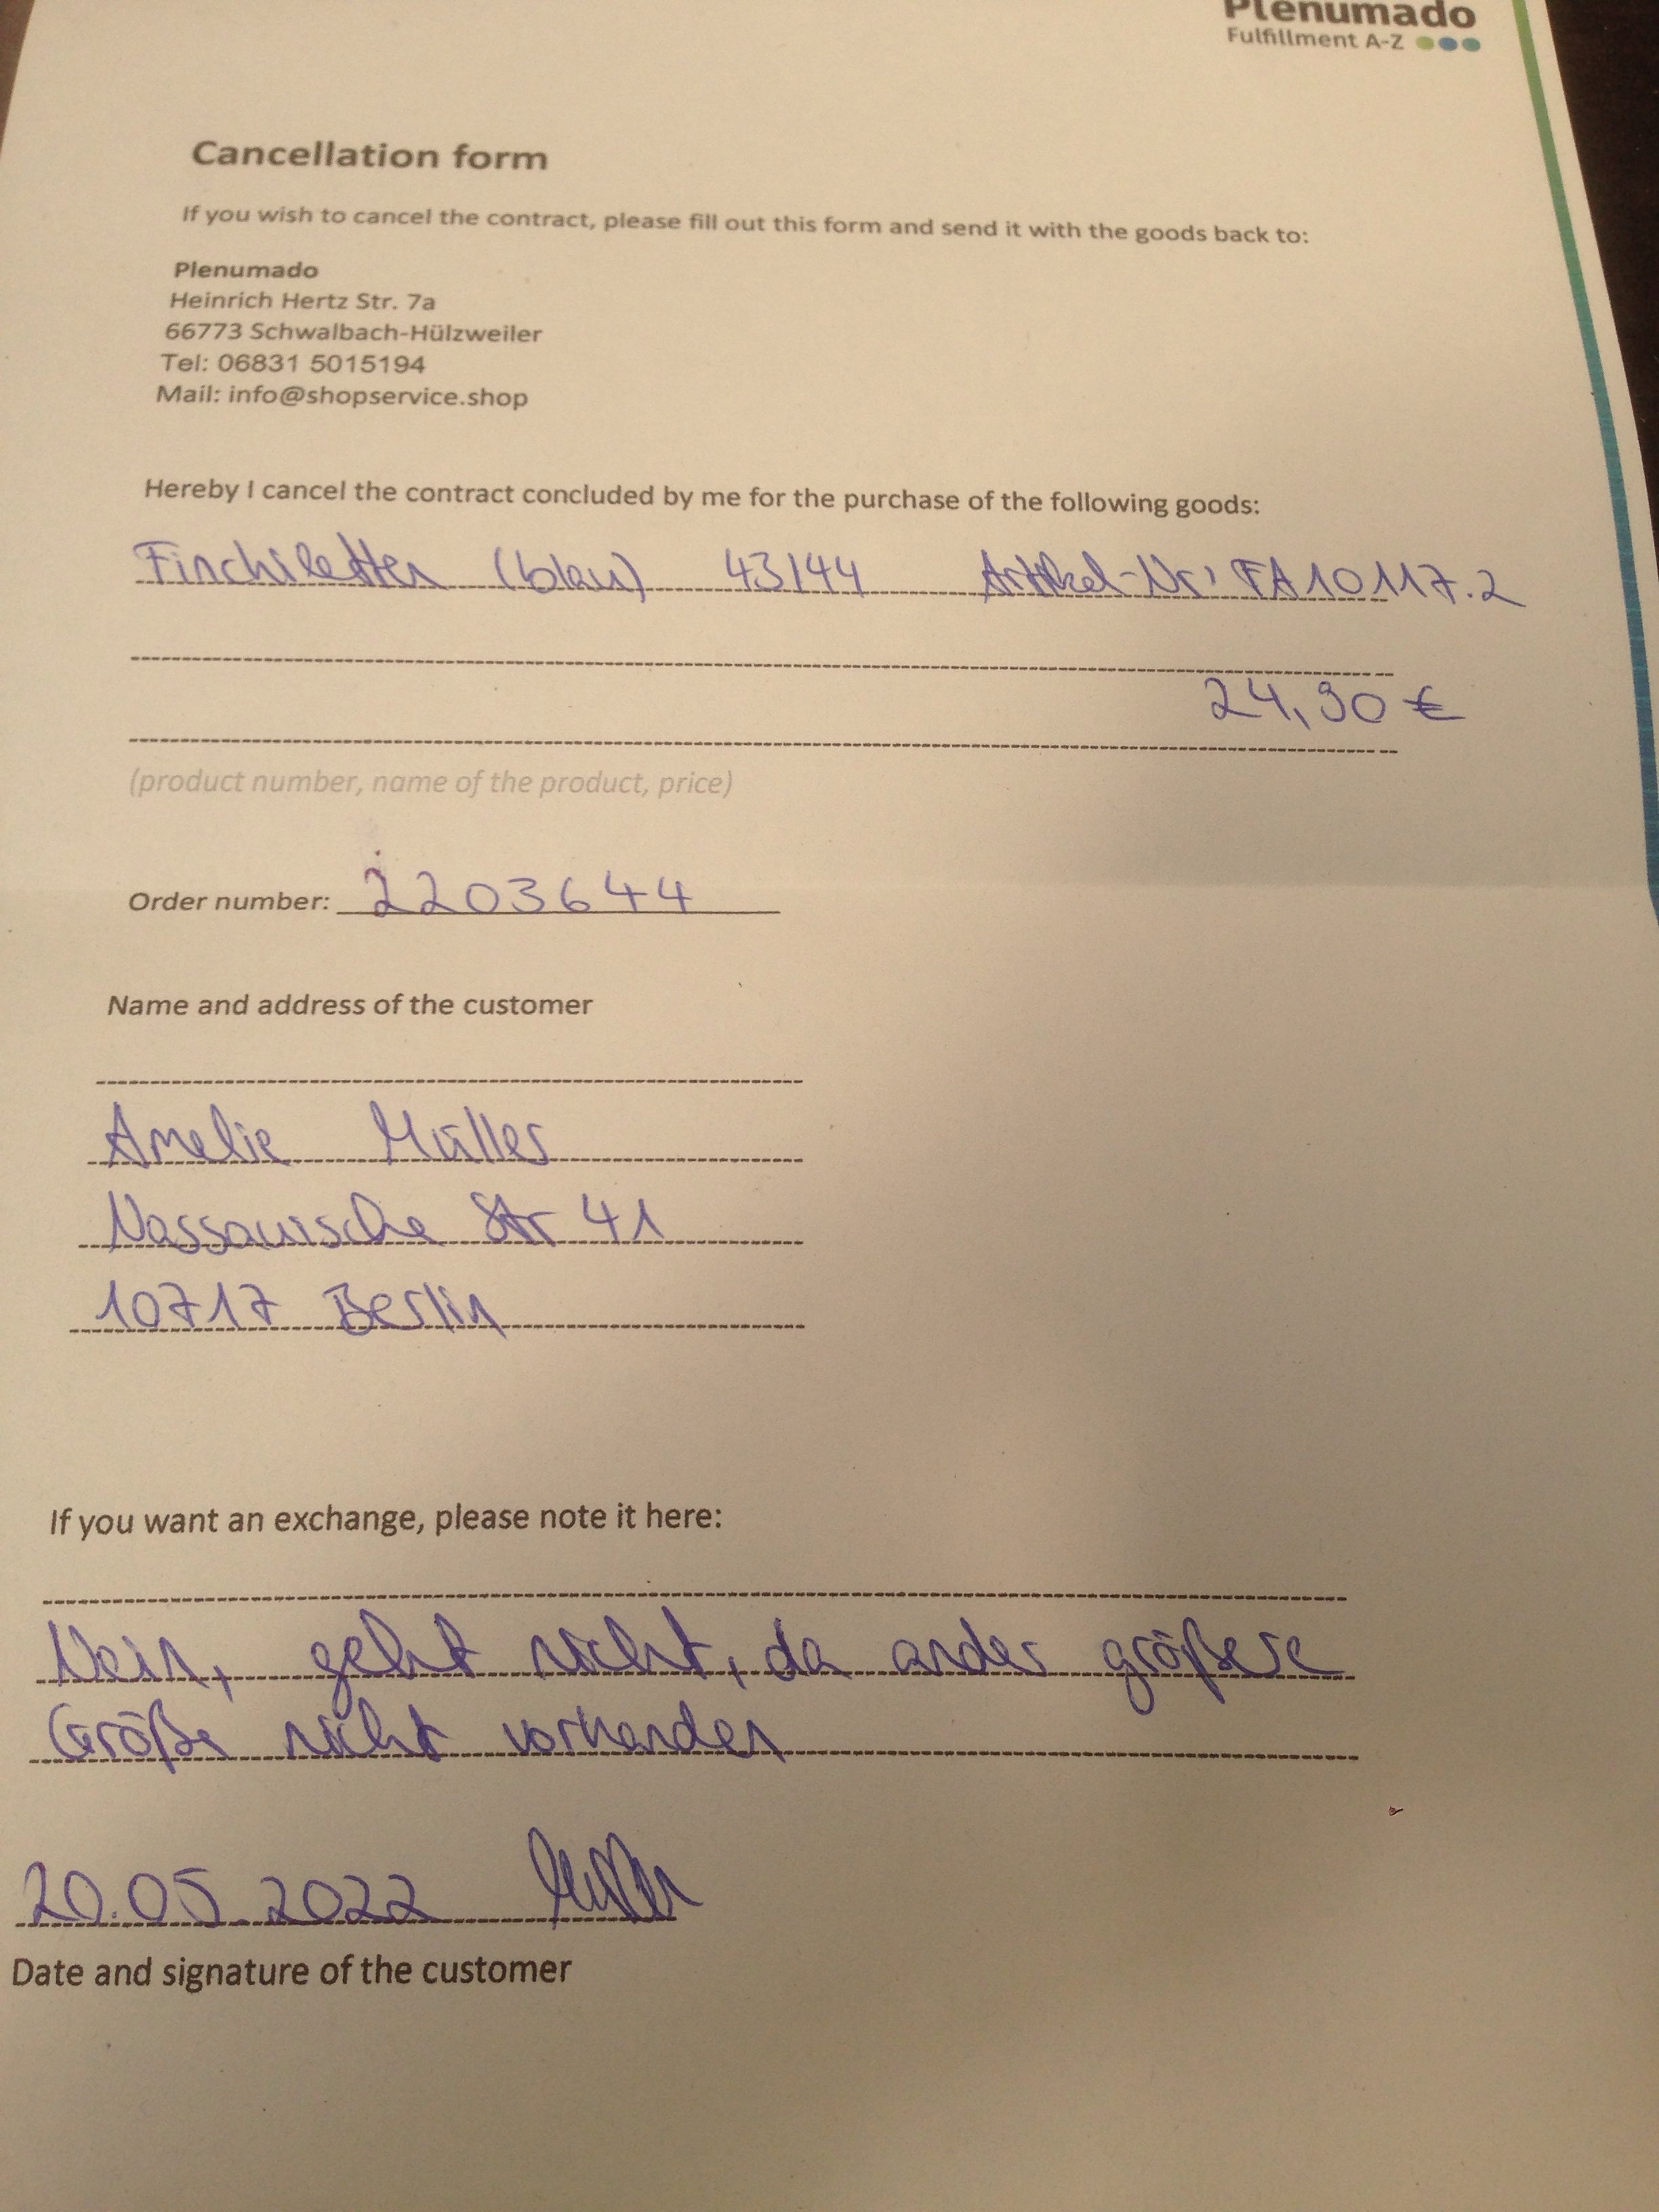 Plenumado
Fulfillment A-Z
Cancellation form
If you wish to cancel the contract, please fill out this form and send it with the goods back to:
Plenumado
Heinrich Hertz Str. 7a
66773 Schwalbach-Hülzweiler
Tel: 06831 5015194
Mail: info@shopservice.shop
Hereby I cancel the contract concluded by me for the purchase of the following goods:
(blau) 43/44 Artikel-Nr: FA10117.2
24,90 €
(product number, name of the product, price)
Order number: 2203644
Name and address of the customer
Amelie Müller
Nassauische Str 41
10717 Berlin
If you want an exchange, please note it here:
Nein, geht nicht, da ander größere
Größe nicht vorhanden
20.05.2022
Date and signature of the customer